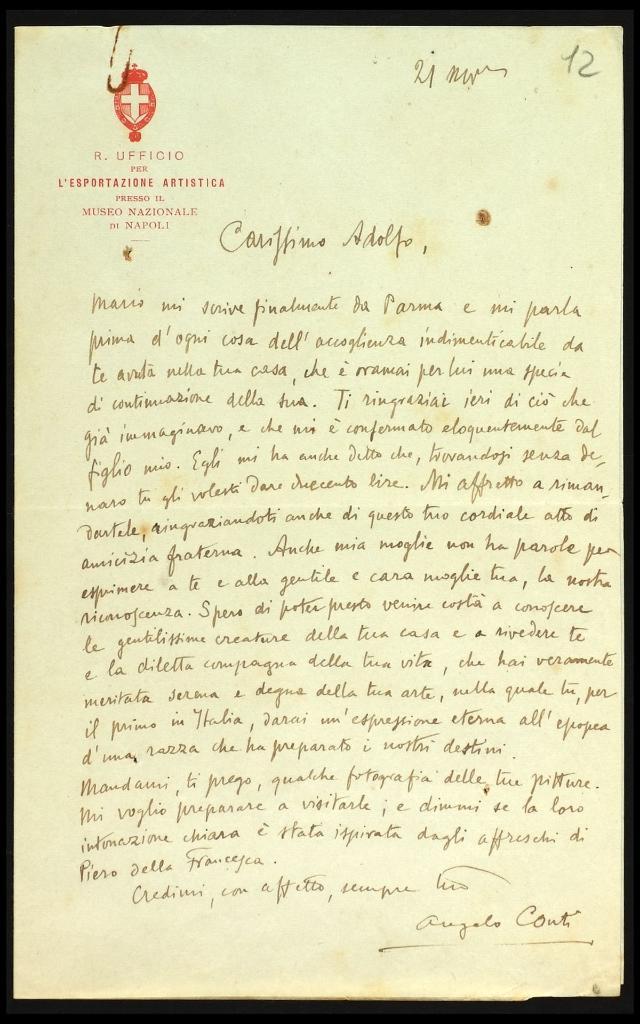 12
21 nov.
R. UFFICIO
PER
L'ESPORTAZIONE ARTISTICA
PRESSO IL
MUSEO NAZIONALE
DI NAPOLI
Carissimo Adolfo,
Mario mi scrive finalmente da Parma e mi parla
prima d'ogni cosa dell'accoglienza indimenticabile da
te avuta nella tua casa, che è oramai per lui una specia
di continuazione della sua. Ti ringraziai ieri di ciò che
già immaginavo, e che mi è confermato eloquentemente dal
figlio mio. Egli mi ha anche detto che, trovandosi senza de-
naro tu gli volesti dare duecento lire. Mi affretto a riman-
dartele, ringraziandoti anche di questo tuo cordiale atto di
amicizia fraterna. Anche mia moglie non ha parole per
esprimere a te e alla gentile e cara moglie tua, la nostra
riconoscenza. Spero di poter presto venire costà a conoscere
le gentilissime creature della tua casa e a rivedere te
e la diletta compagna della tua vita, che hai veramente
meritata serena e degna della tua arte, nella quale tu, per
il primo in Italia, darai un'espressione eterna all'epopea
d'una razza che ha preparato i nostri destini.
Mandami, ti prego, qualche fotografia delle tue pitture.
Mi voglio preparare a visitarle; e dimmi se la loro
intonazione chiara è stata ispirata dagli affreschi di
Piero della Francesca.
Credimi, con affetto, sempre tuo
Angelo Conti